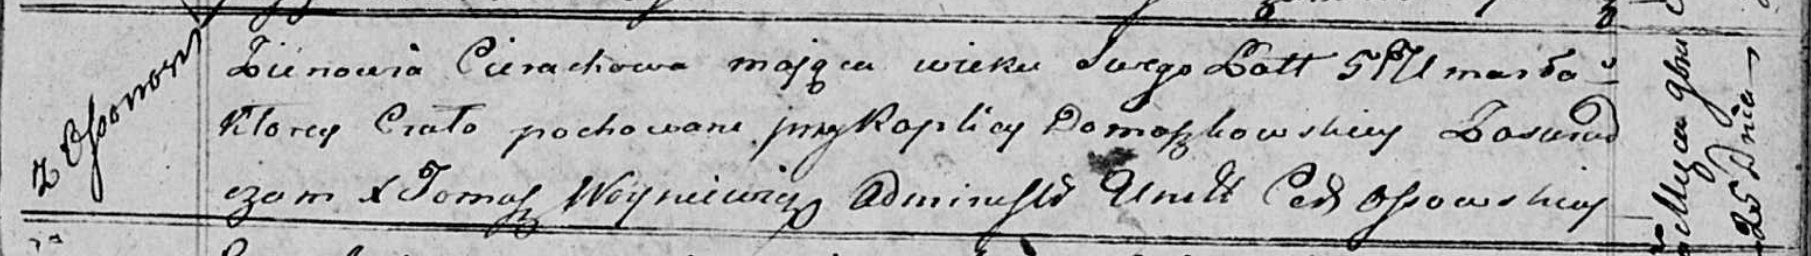 z Ossowa
Zienowia Cierachowa mająca wieku Swego Latt 57 Umarła
Ktorey Ciało pochowane przy Kaplicy Domaszkowskiey Zaswiad
czam X Tomasz Woyniewicz Administr Unitt Cer Ossowskiey
25 Dnia